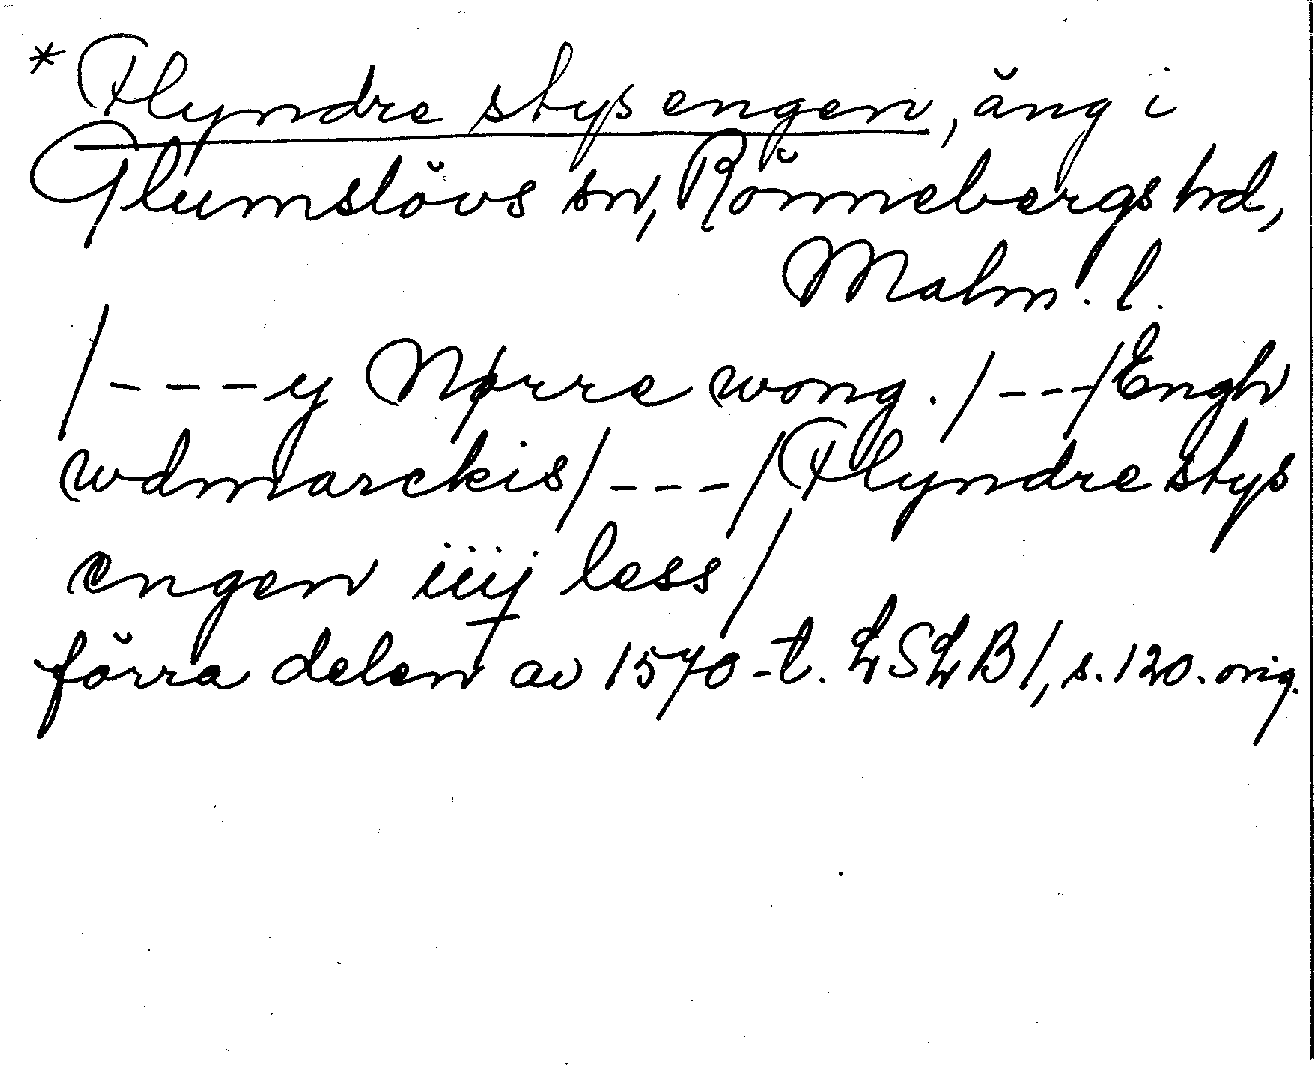 * Flyndre stys engen, äng i
Glumslövs sn, Rönnebergs hd,
Malm. l.
/---y Nørre wong. /---/Engh
wdmarckis/---/Flyndre stys
engen iiij less/
förra delen av 1570-t. LSLB1, s. 120. orig.